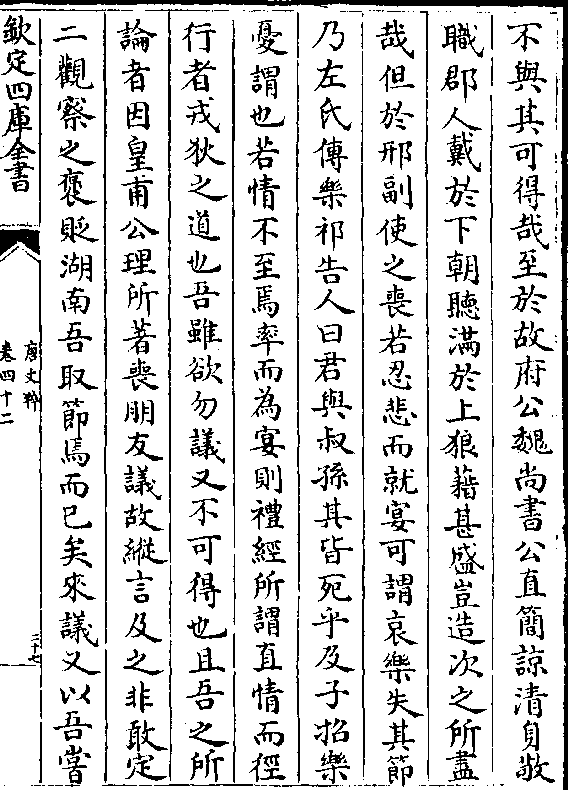 不與其可得哉至於故府公魏尚書公直簡諒清身敬
職郡人戴於下朝聽滿於上狼藉甚盛豈造次之所盡
哉但於邢副使之喪若忍悲而就宴可謂哀樂失其節
乃左氏傳樂祁告人曰君與叔孫其皆死乎及子招樂
憂謂也若情不至焉率而為宴則禮經所謂直情而徑
行者戎狄之道也吾雖欲勿議又不可得也且吾之所
論者因皇甫公理所著喪朋友議故縱言及之非敢定
二觀察之褒貶湖南吾取節焉而已矣來議又以吾嘗
欽定四庫全書
唐文粹
卷四十二
三十七